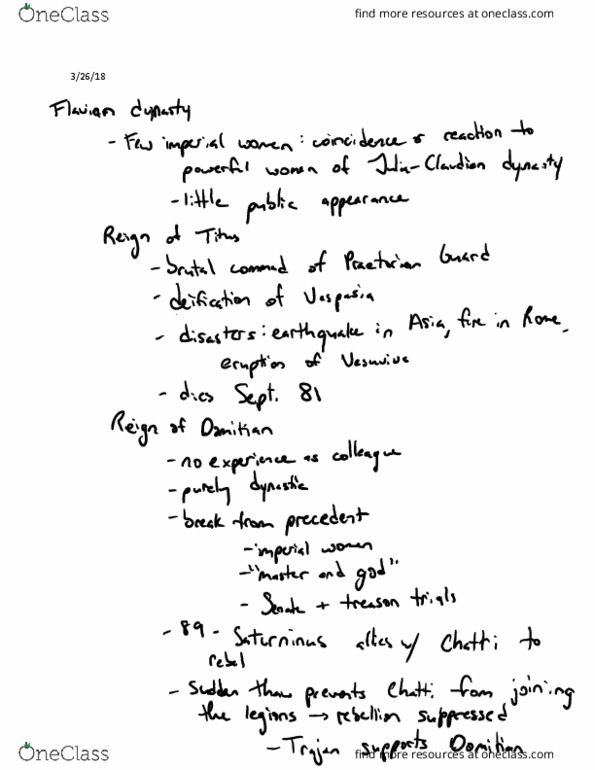 OneClass
find more resources at oneclass.com
3/26/18
Flavian dynasty
- Few imperial women: coincidence or reaction to
powerful women of Julio-Claudian dynasty
- little public appearance
Reign of Titus
- brutal command of Praetorian Guard
- deification of Vespasia
- disasters: earthquake in Asia, fire in Rome,
eruption of Vesuvius
- dies Sept. 81
Reign of Domitian
- no experience as colleague
- purely dynastic
- break from precedent
- imperial women
- "master and god"
- Senate + treason trials
- 89 - Saturninus allies w/ Chatti to
rebel
- sudden thaw prevents Chatti from joining
the legions → rebellion suppressed
- Trajan supports Domitian
OneClass
find more resources at oneclass.com